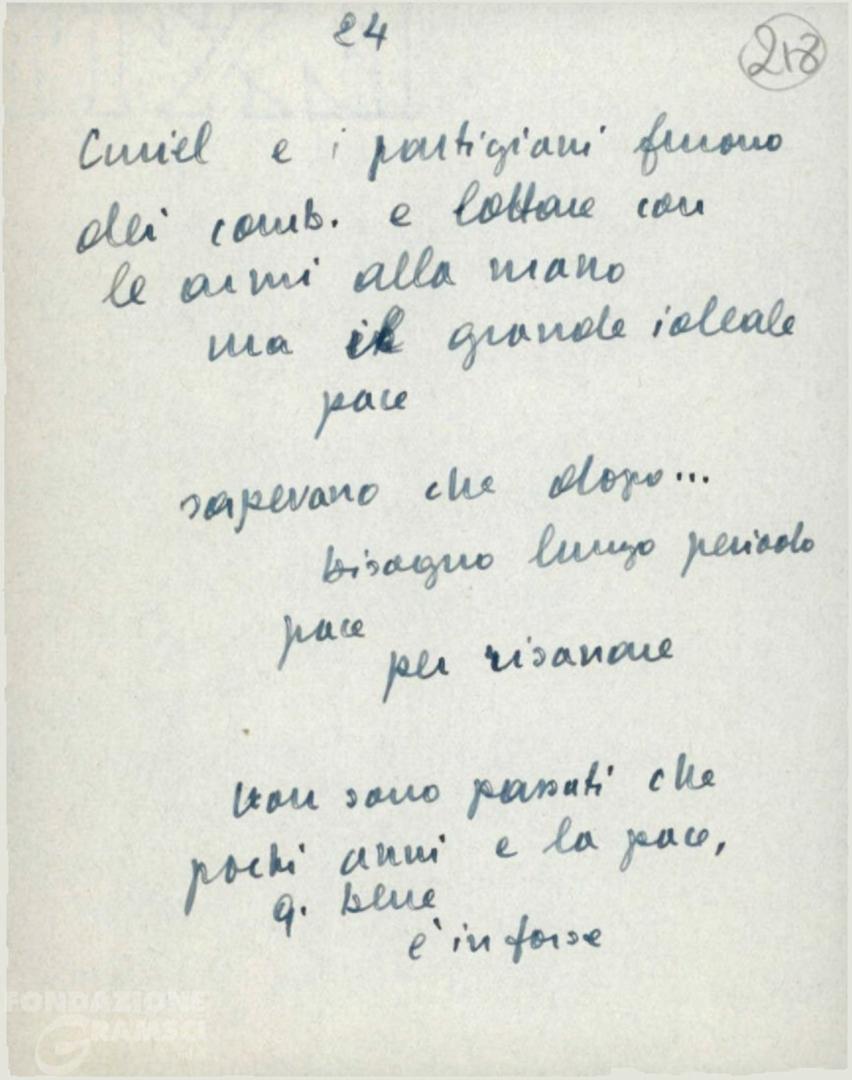 24
218
Curiel e i partigiani furono
dei comb. e lottare con
le armi alla mano
ma il grande ideale
pace
sapevano che dopo...
bisogno lungo periodo
pace
per risanare
Non sono passati che
pochi anni e la pace,
q. bene
è in forse
FONDAZIONE
GRAMSCI